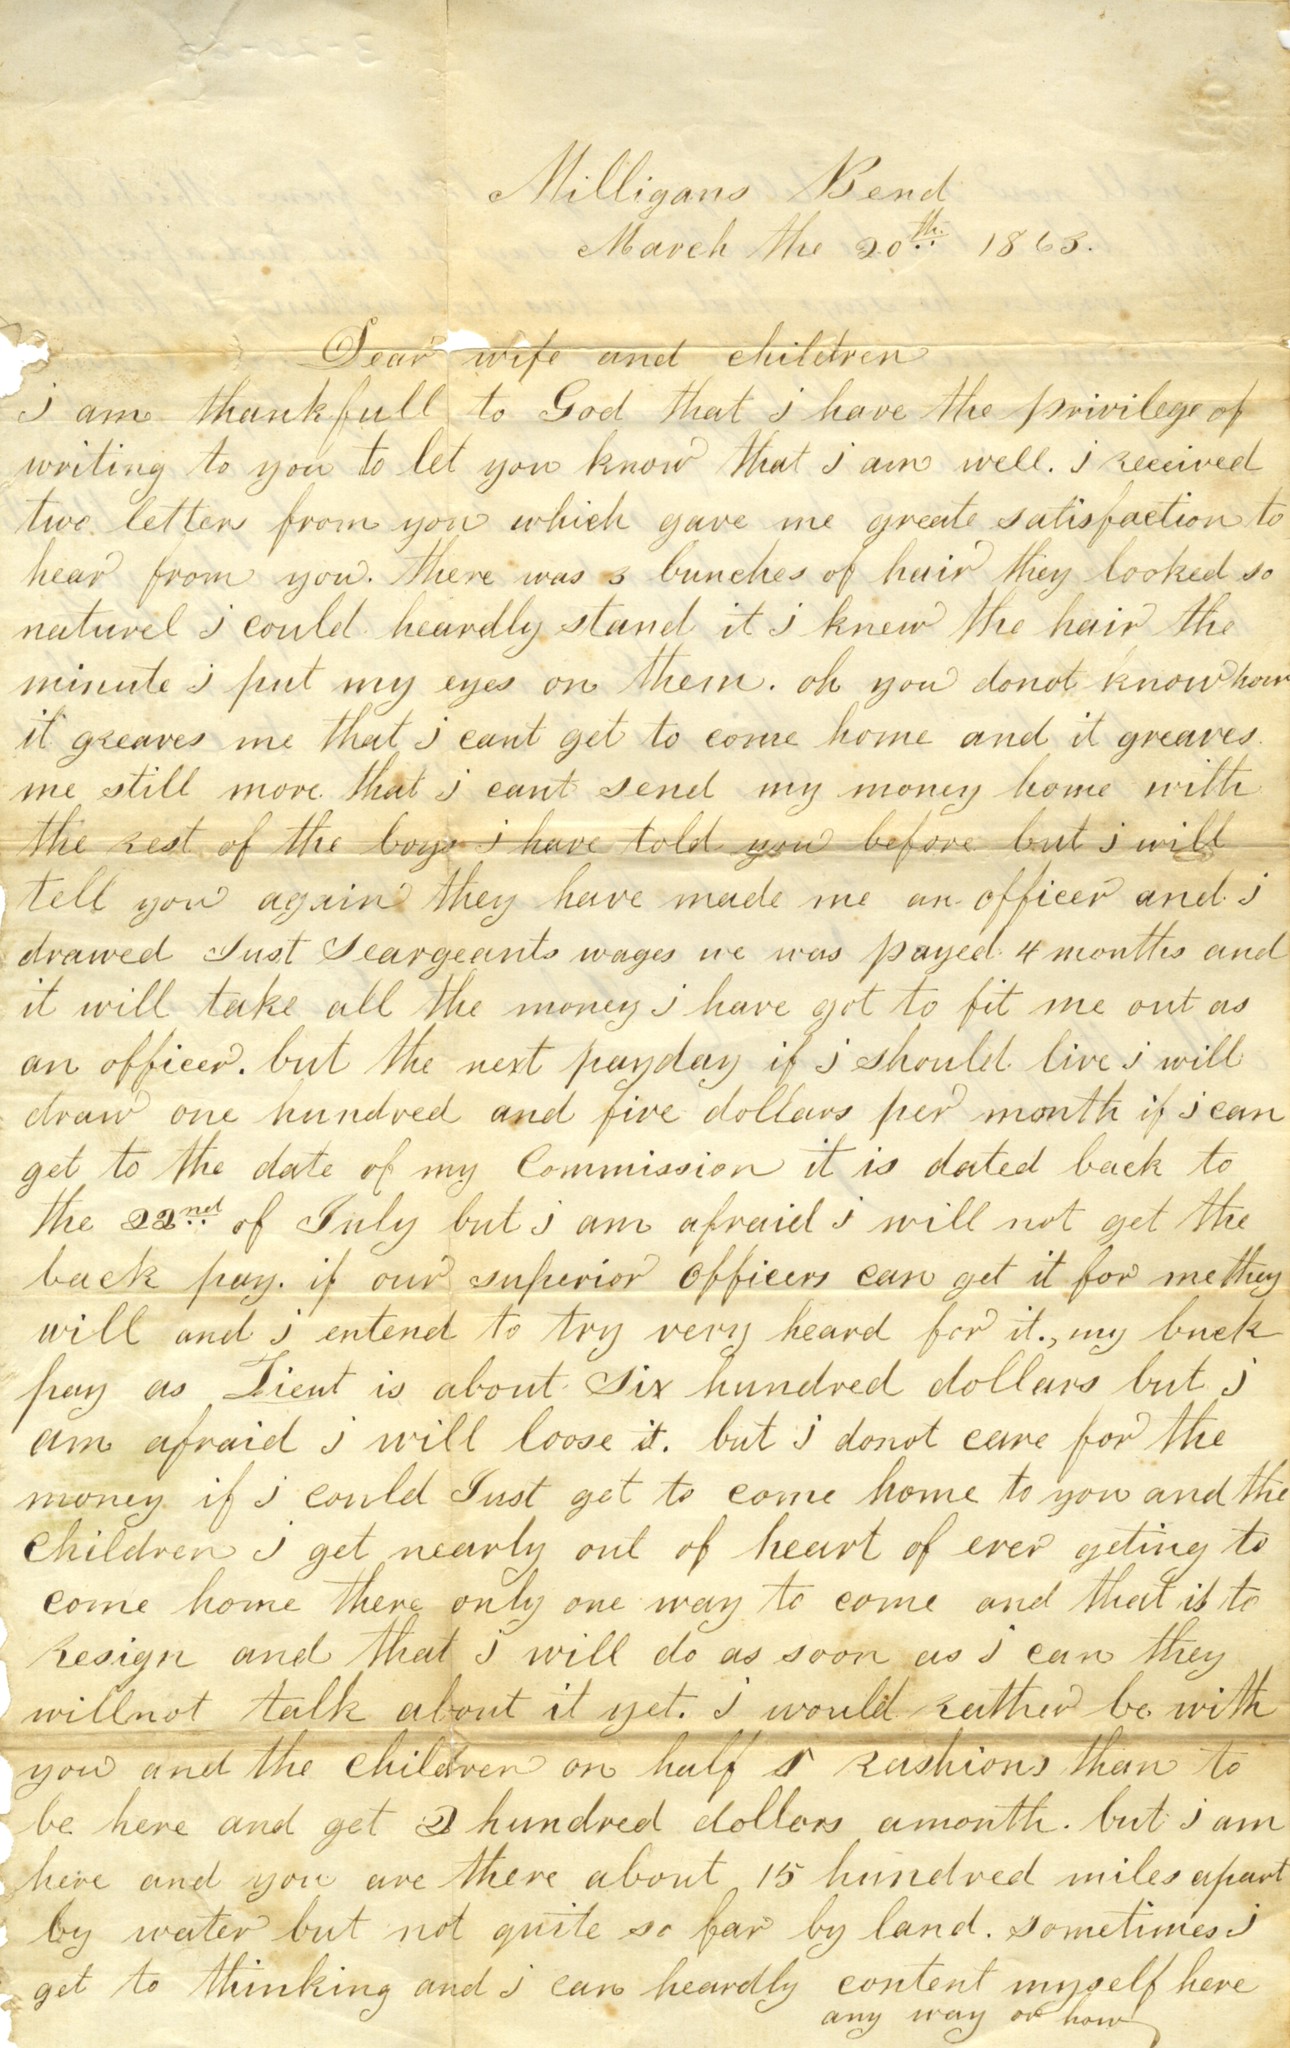 Milligans Bend
March the 20th. 1863.
Dear wife and children
i am thankfull to God that i have the privilege of
writing to you to let you know that i am well. i received
two letters from you which gave me greate satisfaction to
hear from you. there was 3 bunches of hair they looked so
naturel i could heardly stand it i knew the hair the
minute i put my eyes on them. oh you donot know how
it greaves me that i cant get to come home and it greaves
me still more that i cant send my money home with
the rest of the boys i have told you before but i will
tell you again they have made me an officer and i
drawed Just Seargeants wages we was payed 4 months and
it will take all the money i have got to fit me out as
an officer. but the next payday if i should live i will
draw one hundred and five dollars per month if i can
get to the date of my Commission it is dated back to
the 22nd of July but i am afraid i will not get the
back pay. if our superior officers can get it for me they
will and i entend to try very heard for it., my back
pay as Lieut is about Six hundred dollars but i
am afraid i will loose it. but i donot care for the
money if i could Just get to come home to you and the
children i get nearly out of heart of ever geting to
come home there only one way to come and that is to
resign and that i will do as soon as i can they
willnot talk about it yet. i would rather be with
you and the children on half rashions than to
be here and get 2 hundred dollars amonth. but i am
here and you are there about 15 hundred miles apart
by water but not quite so far by land. sometimes i
get to thinking and i can heardly content myself here
any way or how